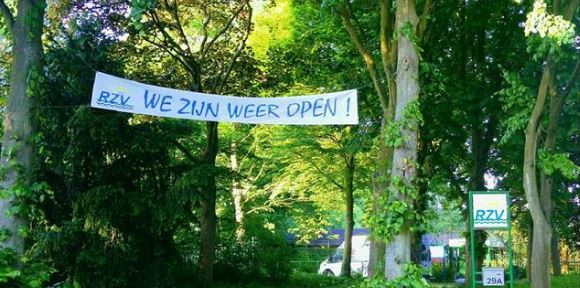 RZV WE ZIJN WEER OPEN !
RZV
29A